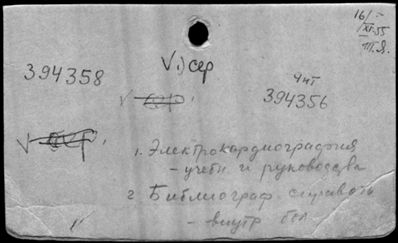 16/-
XI-55
Т.Я.
394358
V 1) сер
Чит
394356
1. Электрокардиография
- учебн и руководства
2. Библиограф.
- внутр бол